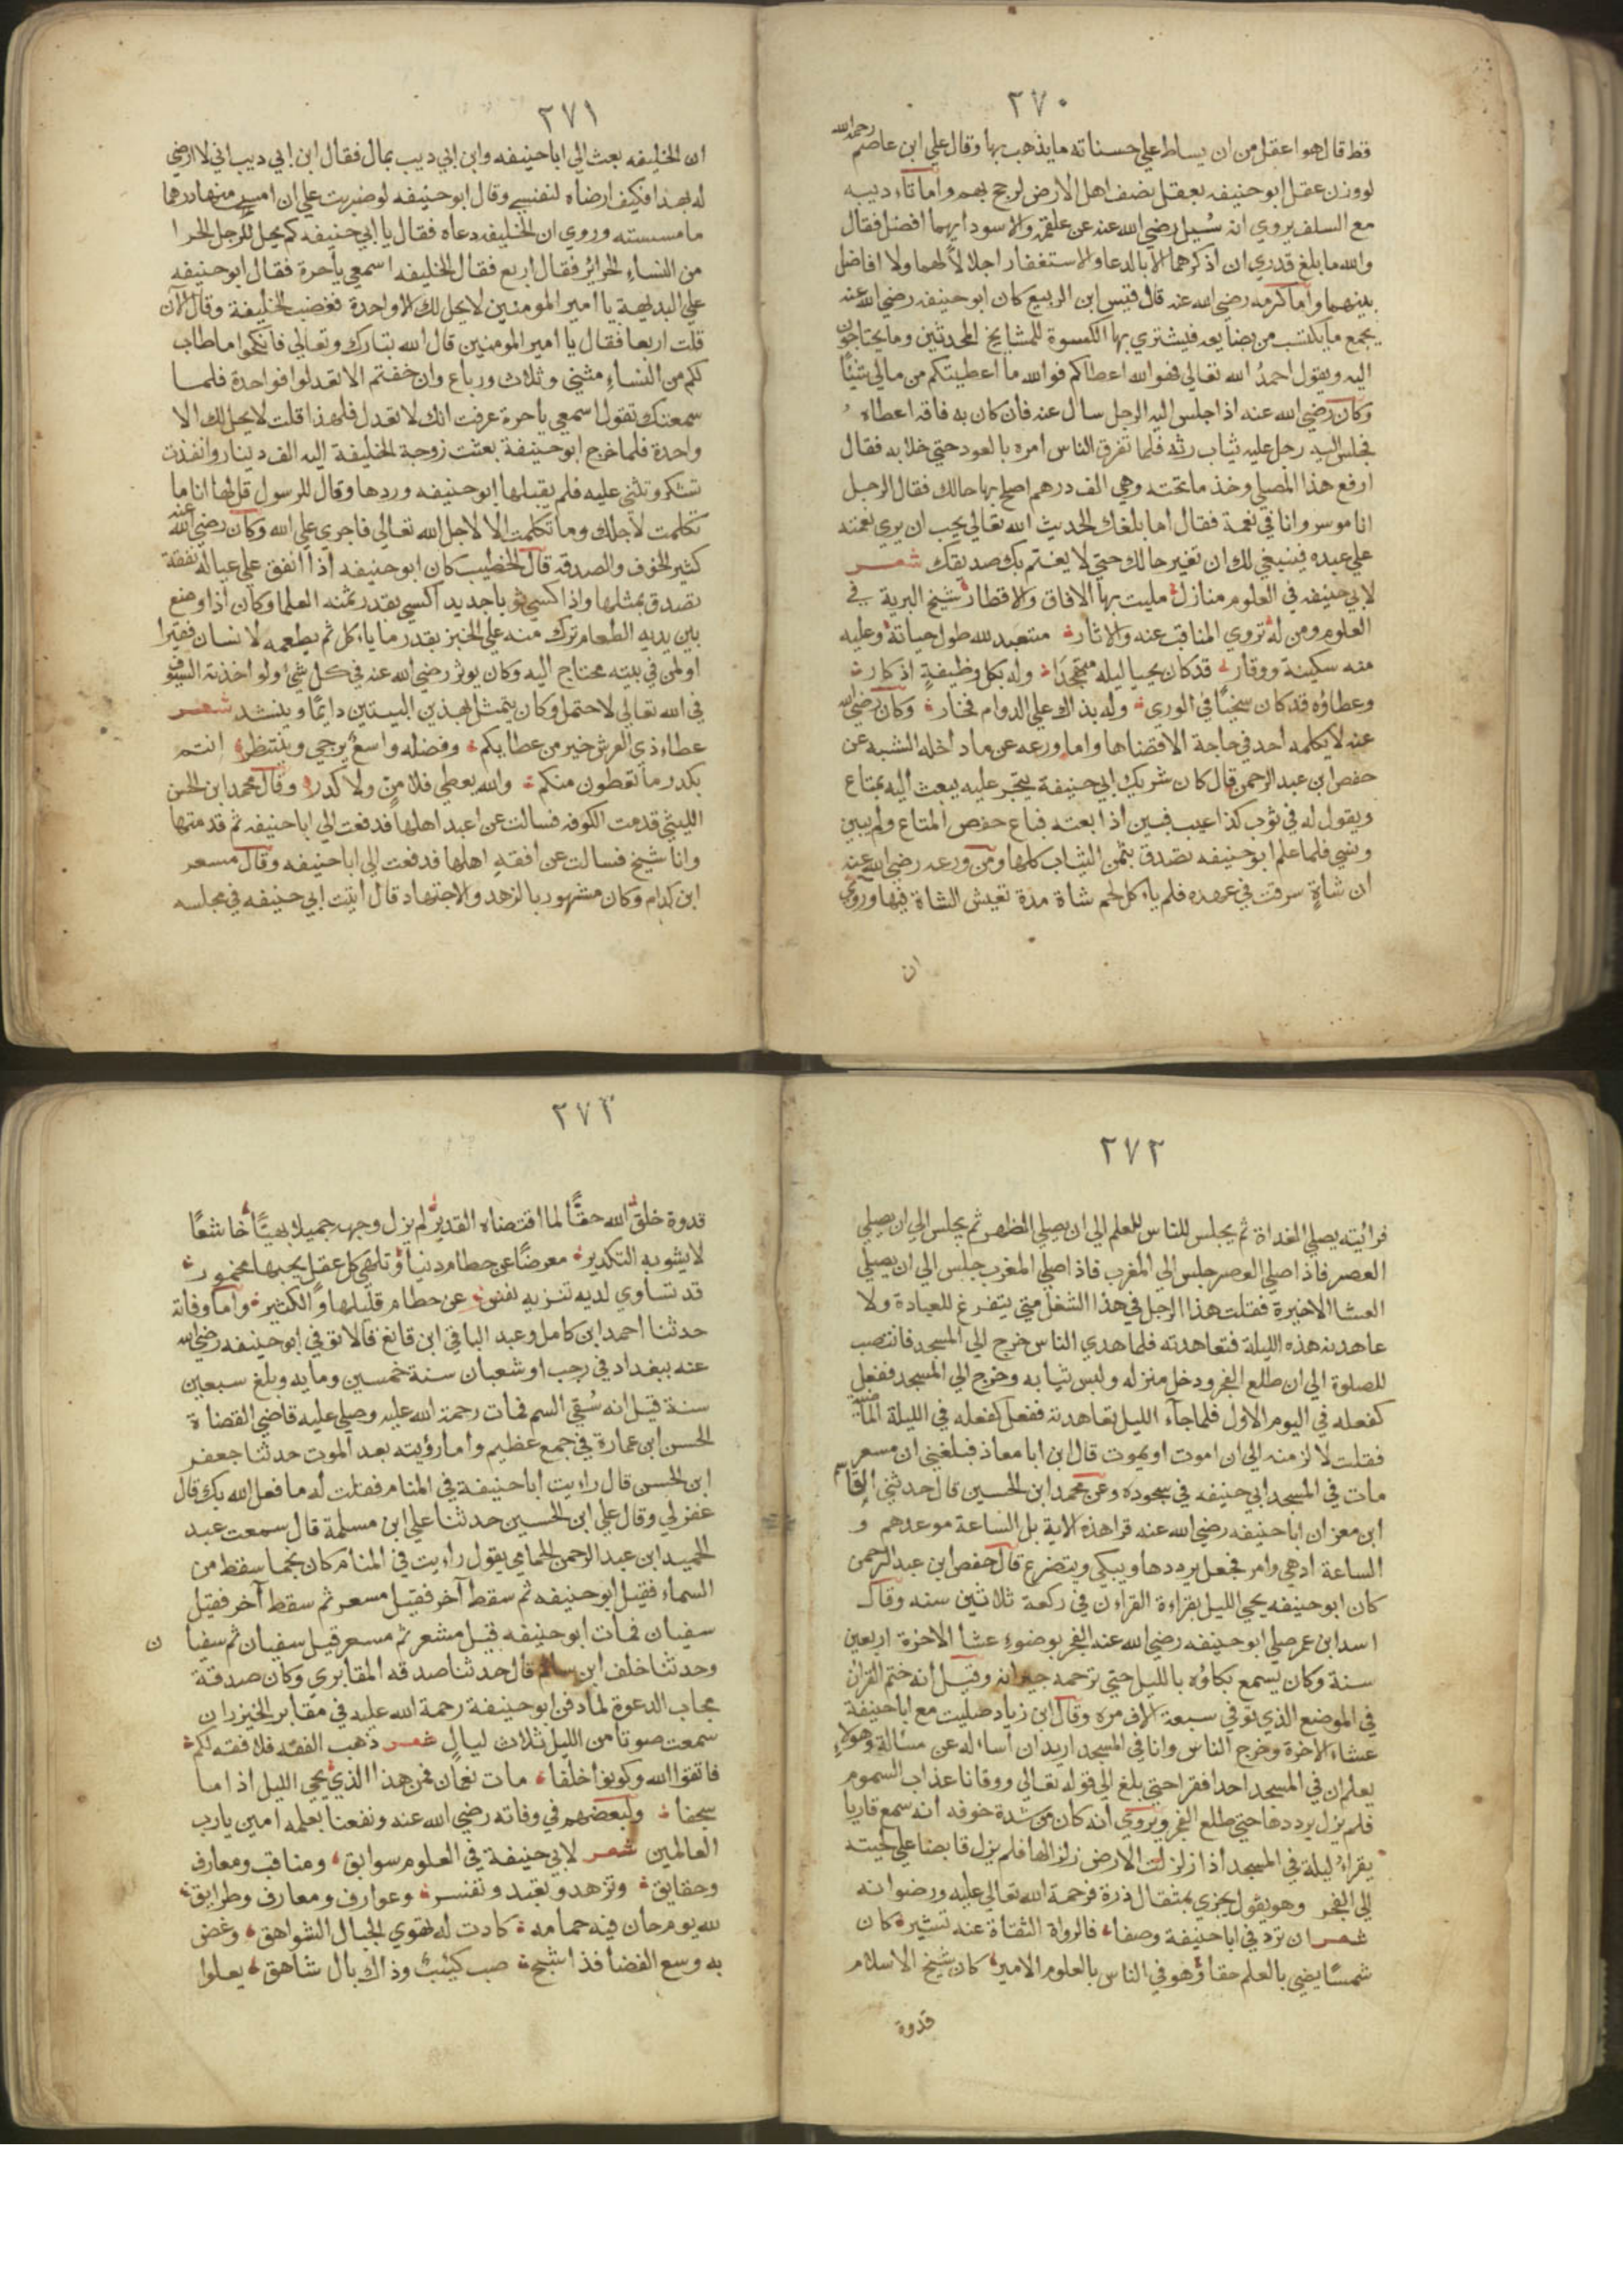 ٢٧٠
قط قال هو اعقل من ان يسلط علي حسناته ما يذهب بها وقال علي ابن عاصم رحمه الله
لووزن عقل ابو حنيفه بعقل نصف اهل الارض لرجح بهم واما تاءدبيه
مع السلف يروي انه سُيل رضي الله عنه عن علقمه والاسود ايهما افضل فقال
والله ما بلغ قدري ان اذكرهما الا بالدعا والاستغفار اجلالاً لهما ولا افاضل
بينهما واما كرمه رضي الله عنه قال قيس ابن الربيع كان ابو حنيفه رضي الله عنه
يجمع ما يكتسب من بضايعه فيشتري بها الكسوة للمشايخ المحدثين وما يحتاجون
اليه ويقول احمدُ الله تعالي فهو الله اعطاكم فوالله ما اعطيتكم من مالي شيًا
وكان رضي الله عنه اذا جلس اليه الرجل سال عنه فان كان به فاقه اعطاه
فجلس اليه رجل عليه ثياب رثه فلما تفرق الناس امره بالعود حتي خلا به فقال
ارفع هذا المصلي وخذ ما تحته وهي الف درهم اصلح بها حالك فقال الرجل
انا موسر وانا في نعمة فقال اما بلغك الحديث الله تعالي يحب ان يري نعمته
علي عبده فينبغي لك ان تغير حالك حتي لا يغتم بك صديقك شعر
لابي حنيفه في العلوم منازل مليت بها الافاق والاقطار شيخ البرية في
العلوم ومن له تروي المناقب عنه والاثار متعبد لله طول حياته وعليه
منه سكينة ووقار قد كان يحيا ليله متهجدًا وله بكل وظيفةٍ اذكار
وعطاؤه قد كان سخيًا في الوري وله بذاك علي الدوام فخار وكان رضي الله
عنه لا يكلمه احد في حاجة الا قضاها واما ورعه عن ما داخله الشبه عن
حفص ابن عبد الرحمن قال كان شريك ابي حنيفة يتجر عليه يبعث اليه بمتاع
ويقول له في ثوب كذا عيب فبين اذا بعته فباع حفص المتاع ولم يبين
ونسي فلما علم ابو حنيفه تصدق بثمن الثياب كلها ومن ورعه رضي الله عنه
ان شاةٍ سرقت في عهده فلم ياءكل لحم شاة مدة تعيش الشاة فيها وروي
ان
٢٧١
ان الخليفه بعث الي ابا حنيفه وابن ابي ديب بمال فقال ابن ابي ديب اني لا ارضي
له بهذا فكيف ارضاه لنفسي وقال ابو حنيفه لو ضربت علي ان امس منها درهما
ما مسسته وروي ان الخليفه دعاه فقال يا ابي حنيفه كم يحل للرجل الحر
من النساءِ الحرائر فقال اربع فقال الخليفه اسمعي يا حرة فقال ابو حنيفه
علي البديهة يا امير المومنين لا يحل لك الا واحدة فغضب الخليفة وقال الآن
قلت اربعا فقال يا امير المومنين قال الله تبارك وتعالي فانكحوا ما طاب
لكم من النساءِ مثني وثلاث ورباع وان خفتم الا تعدلوا فواحدة فلما
سمعتك تقول اسمعي يا حرة عرفت انك لا تعدل فلهذا قلت لا يحل لك الا
واحدة فلما خرج ابو حنيفة بعثت زوجة الخليفة اليه الف دينار وانفذت
تشكر وتثني عليه فلم يقبلها ابو حنيفه وردها وقال للرسول قل لها انا ما
تكلمت لاجلك وما تكلمت الا لاجل الله تعالي فاجري علي الله وكان رضي الله عنه
كثير الخوف والصدقه قال الخطيب كان ابو حنيفه اذا انفق علي عياله نفقة
تصدق بمثلها واذا اكسي ثوبا جديد اكسي بقدر ثمنه العلما وكان اذا وضع
بين يديه الطعام ترك منه علي الخبز بقدر ما ياءكل ثم يطعمه لانسان فقيرا
او لمن في بيته محتاج اليه وكان يوثر رضي الله عنه في كل شيٍ ولو اخذته السيوف
في الله تعالي لاحتمل وكان يتمثل بهذين البيتين دايمًا وينشد شعر
عطاء ذي العرش خير من عطايكم وفضله واسعٌ يرجي وينتظر انتم
يكدر ما تعطون منكم والله يعطي فلا منٌ ولا كدر وقال محمد ابن الحسن
الليثي قدمت الكوفه فسالت عن اعبد اهلها فدفعت الي ابا حنيفه ثم قدمتها
وانا شيخ فسالت عن افقهِ اهلها فدفعت الي ابا حنيفه وقال مسعر
ابن كدام وكان مشهور بالزهد والاجتهاد قال اتيت ابي حنيفه في مجلسه
٢٧٢
فرائيته يصلي الغداة ثم يجلس للناس للعلم الي ان يصلي الظهر ثم يجلس الي ان يصلي
العصر فاذا صلي العصر جلس الي المغرب فاذا صلي المغرب جلس الي ان يصلي
العشا الاخيرة فقلت هذا الرجل في هذا الشغل متي يتفرغ للعبادة ولا
عاهدنه هذه الليلة فتعاهدته فلما هدي الناس خرج الي المسجد فانتصب
للصلوة الي ان طلع الفجر ودخل منزله ولبس ثيابه وخرج الي المسجد ففعل
كفعله في اليوم الاول فلما جآء الليل تعاهدته ففعل كفعله في الليلة الماضية
فقلت لا لزمنه الي ان اموت او يموت قال ابن ابا معاذ فبلغني ان مسعر
مات في المسجد ابي حنيفه في سجوده وعن محمد ابن الحسين قال حدثني القاسم
ابن معن ان ابا حنيفه رضي الله عنه قرا هذه الاية بل الساعة موعدهم و
الساعة ادهي وامر فجعل يرددها ويبكي ويتضرع قال حفص ابن عبد الرحمن
كان ابو حنيفه يحي الليل بقراءة القراءن في ركعة ثلاثين سنه وقال
اسد ابن عمر صلي ابو حنيفه رضي الله عنه الفجر بوضوءِ عشاءِ الاخرة اربعين
سنة وكان يسمع بكاؤه بالليل حتي ترحمه جيرانه وقيل انه ختم القران
في الموضع الذي توفي سبعة الاف مره وقال ابن زياد صليت مع ابا حنيفة
عشاءَ الاخرة وخرج الناس وانا في المسجد اريد ان اساءله عن مسالة وهو لا
يعلم ان في المسجد احدا فقرا حتي بلغ الي قوله تعالي ووقانا عذاب السموم
فلم يزل يرددها حتي طلع الفجر ويروي انه كان من شدة خوفه انه سمع قاريا
يقراءُ ليلة في المسجد اذا زلزلت الارض زلزالها فلم يزل قابضا علي لحيته
الي الفجر وهو يقول يجزي بمثقال ذرة فرحمة الله تعالي عليه ورضوانه
شعر ان ترد في ابا حنيفة وصفا فالرواة الثقاة عنه تشير كان
شمسًا يضي بالعلم حقا وهو في الناس بالعلوم الامير كان شيخ الاسلام
قدوة
٢٧٣
قدوة خلق الله حقًّا لما اقتضاه القدير لم يزل وجهه جميلا بهيًّا خاشعًا
لا يشوبه التكدير معرضًا عن حطام دنيا وتلهي كل عقل يحبها مخمور
قد تساوي لديه تنزيه نفس عن حطام قليلها والكثير واما وفاته
حدثنا احمد ابن كامل وعبد الباقي ابن قانع قالا توفي ابو حنيفه رضي الله
عنه ببغداد في رجب او شعبان سنة خمسين ومايه وبلغ سبعين
سنة قيل انه سُقي السم فمات رحمة الله عليه وصلي عليه قاضي القضاة
الحسن ابن عمارة في جمع عظيم واما رؤيته بعد الموت حدثنا جعفر
ابن الحسن قال راءيت ابا حنيفة في المنام فقلت له ما فعل الله بك قال
غفر لي وقال علي ابن الحسين حدثنا علي ابن مسلمة قال سمعت عبد
الحميد ابن عبد الرحمن الحمامي يقول راءيت في المنام كان نجما سقط من
السماء فقيل ابو حنيفه ثم سقط آخر فقيل مسعر ثم سقط آخر فقيل
سفيان فمات ابو حنيفه قبل مسعر ثم مسعر قبل سفيان ثم سفيان
وحدثنا خلف ابن سالم قال حدثنا صدقه المقابري وكان صدقة
مجاب الدعوة لما دفن ابو حنيفة رحمة الله عليه في مقابر الخيزران
سمعت صوتا من الليل ثلاث ليالٍ شعر ذهب الفقه فلا فقه لكم
فاتقوا الله وكونوا خلفا مات نعمان فمن هذا الذي يحي الليل اذا ما
سجفا ولبعضهم في وفاته رضي الله عنه ونفعنا بعلمه امين يا رب
العالمين شعر لابي حنيفة في العلوم سوابق ومناقب ومعارف
وحقايق وتزهد وتعبد وتفسر وعوارف ومعارف وطرايق
لله يوم حان فيه حمامه كادت له تهوي الجبال الشواهق وغض
به وسع الفضا فذا شج صب كئيبٌ وذاك بال شاهق يعلوا